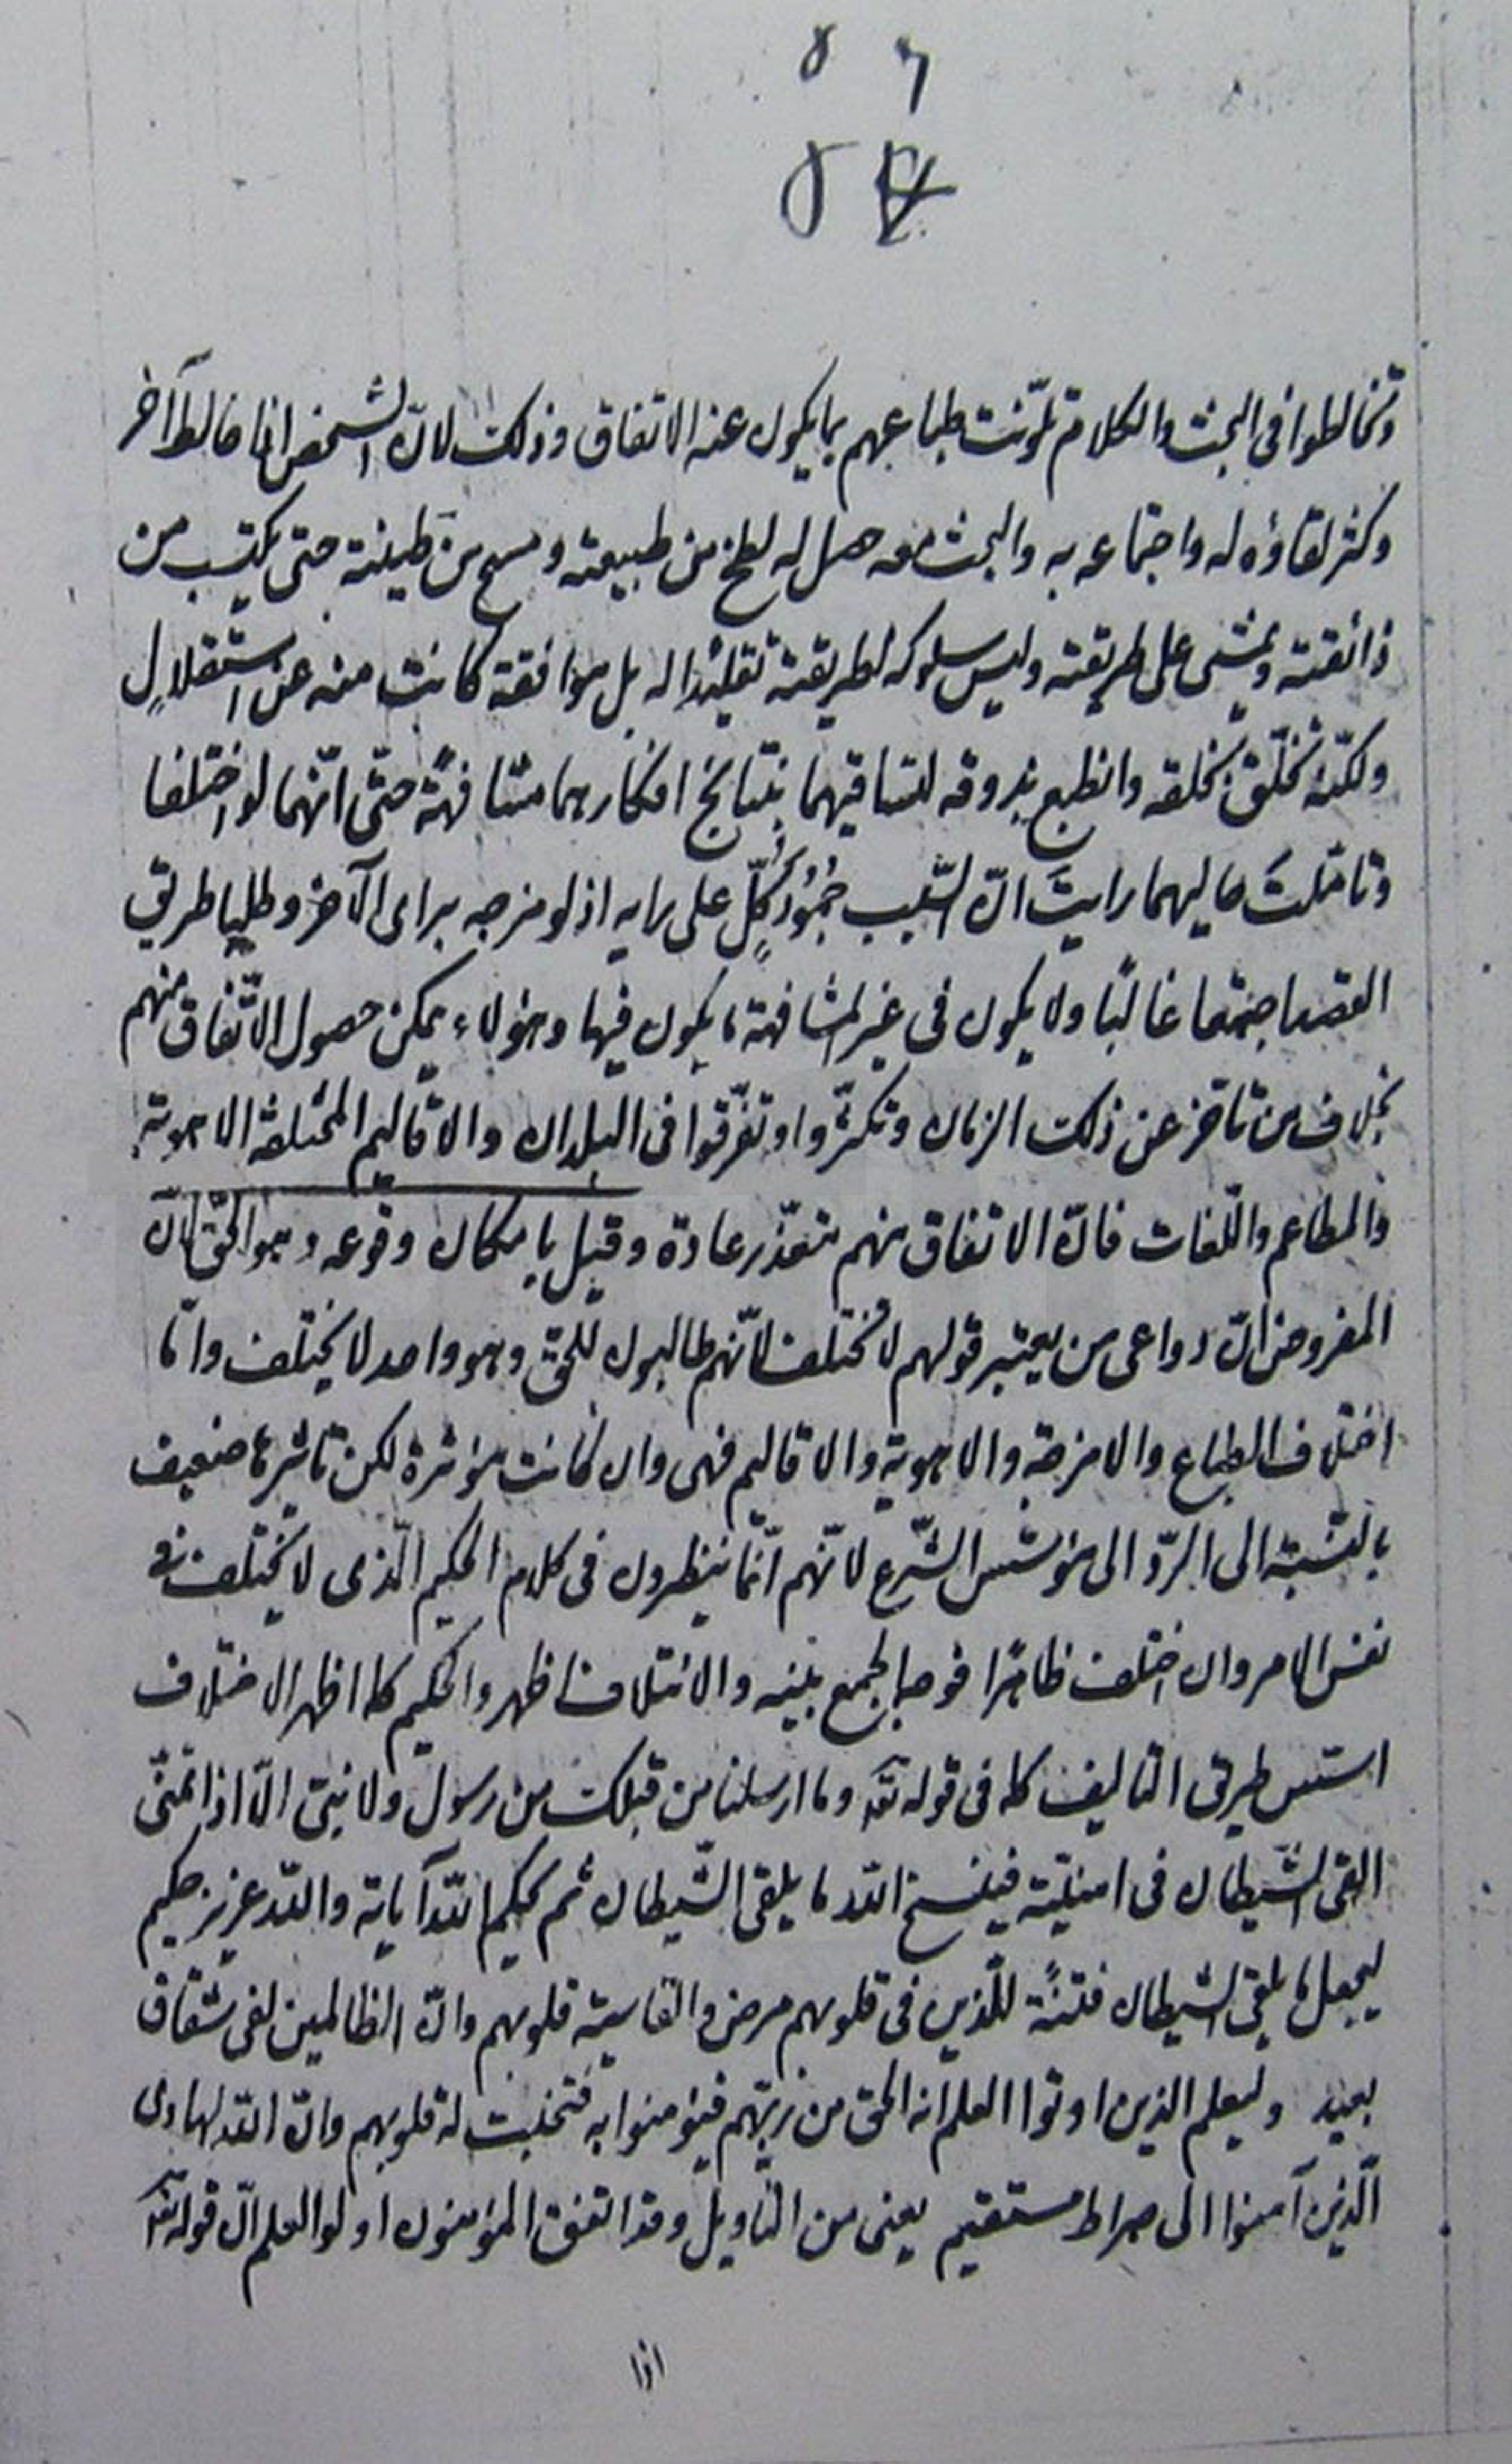 وتخالطوا فى البحث والكلام تلوّنت طباعهم بما يكون عنه الاتفاق وذلك لانّ الشخص اذا خالط آخر
وكثر لقاؤه له واجتماعه به والبحث معه حصل له لطخ من طبيعته ومسح من طينته حتى يكتسب من
ذائقته ويمشى على طريقته وليس سلوكه لطريقته تقليدًا له بل موافقة كانت منه عن استقلالٍ
ولكنّه تخلّق بخلقه وانطبع بذوقه لتساقيهما بنتايج افكارهما مشافهةً حتّى انّهما لو اختلفا
وتامّلتَ حاليهما رايتَ انّ السّبب جُمُودُ كلٍّ على رايه اذ لو مزجه براى الآخر وطلبا طريق
القصد اجتمعا غالبًا ولا يكون فى غير المشافهة ما يكون فيها وهؤلاء يمكن حصول الاتّفاق منهم
بخلاف من تاخّر عن ذلك الزمان وتكثّروا وتفرّقوا فى البلدان والاقاليم المختلفة الاهوية
والمطاعم واللّغات فانّ الاتفاق منهم متعذّر عادة وقيل بامكان وقوعه وهو الحقّ لانّ
المفروض انّ دواعى من يعتبر قولهم لا تختلف لانّهم طالبون للحقّ وهو واحد لا يختلف وامّا
اختلاف الطباع والامزجة والاهوية والاقاليم فهى وان كانت مؤثرة لكن تاثيرها ضعيف
بالنّسبة الى الردّ الى مؤسّس الشّرع لانّهم انّما ينظرون فى كلام الحكيم الّذى لا يختلف فى
نفس الامر وان اختلف ظاهرًا فوجها لجمع بينه والائتلاف اظهر والحكيم كما اظهر الاختلاف
اسّس طريق التاليف كما فى قوله تعالى وما ارسلنا من قبلك من رسول ولا نبىّ الّا اذا تمنّى
القى الشّيطان فى امنيّته فينسخ اللّه ما يلقى الشّيطان ثم يحكم اللّه آياته واللّه عزيز حكيم
ليجعل ما يلقى الشيطان فتنةً للّذين فى قلوبهم مرض والقاسية قلوبهم وانّ الظالمين لفى شقاق
بعيد وليعلم الذين اوتوا العلم انه الحق من ربّهم فيؤمنوا به فتخبت له قلوبهم وانّ اللّه لهادى
الّذين آمنوا الى صراط مستقيم يعنى من التّاويل وقد اتفق المؤمنون اولوا العلم انّ قوله تعالى
اذا